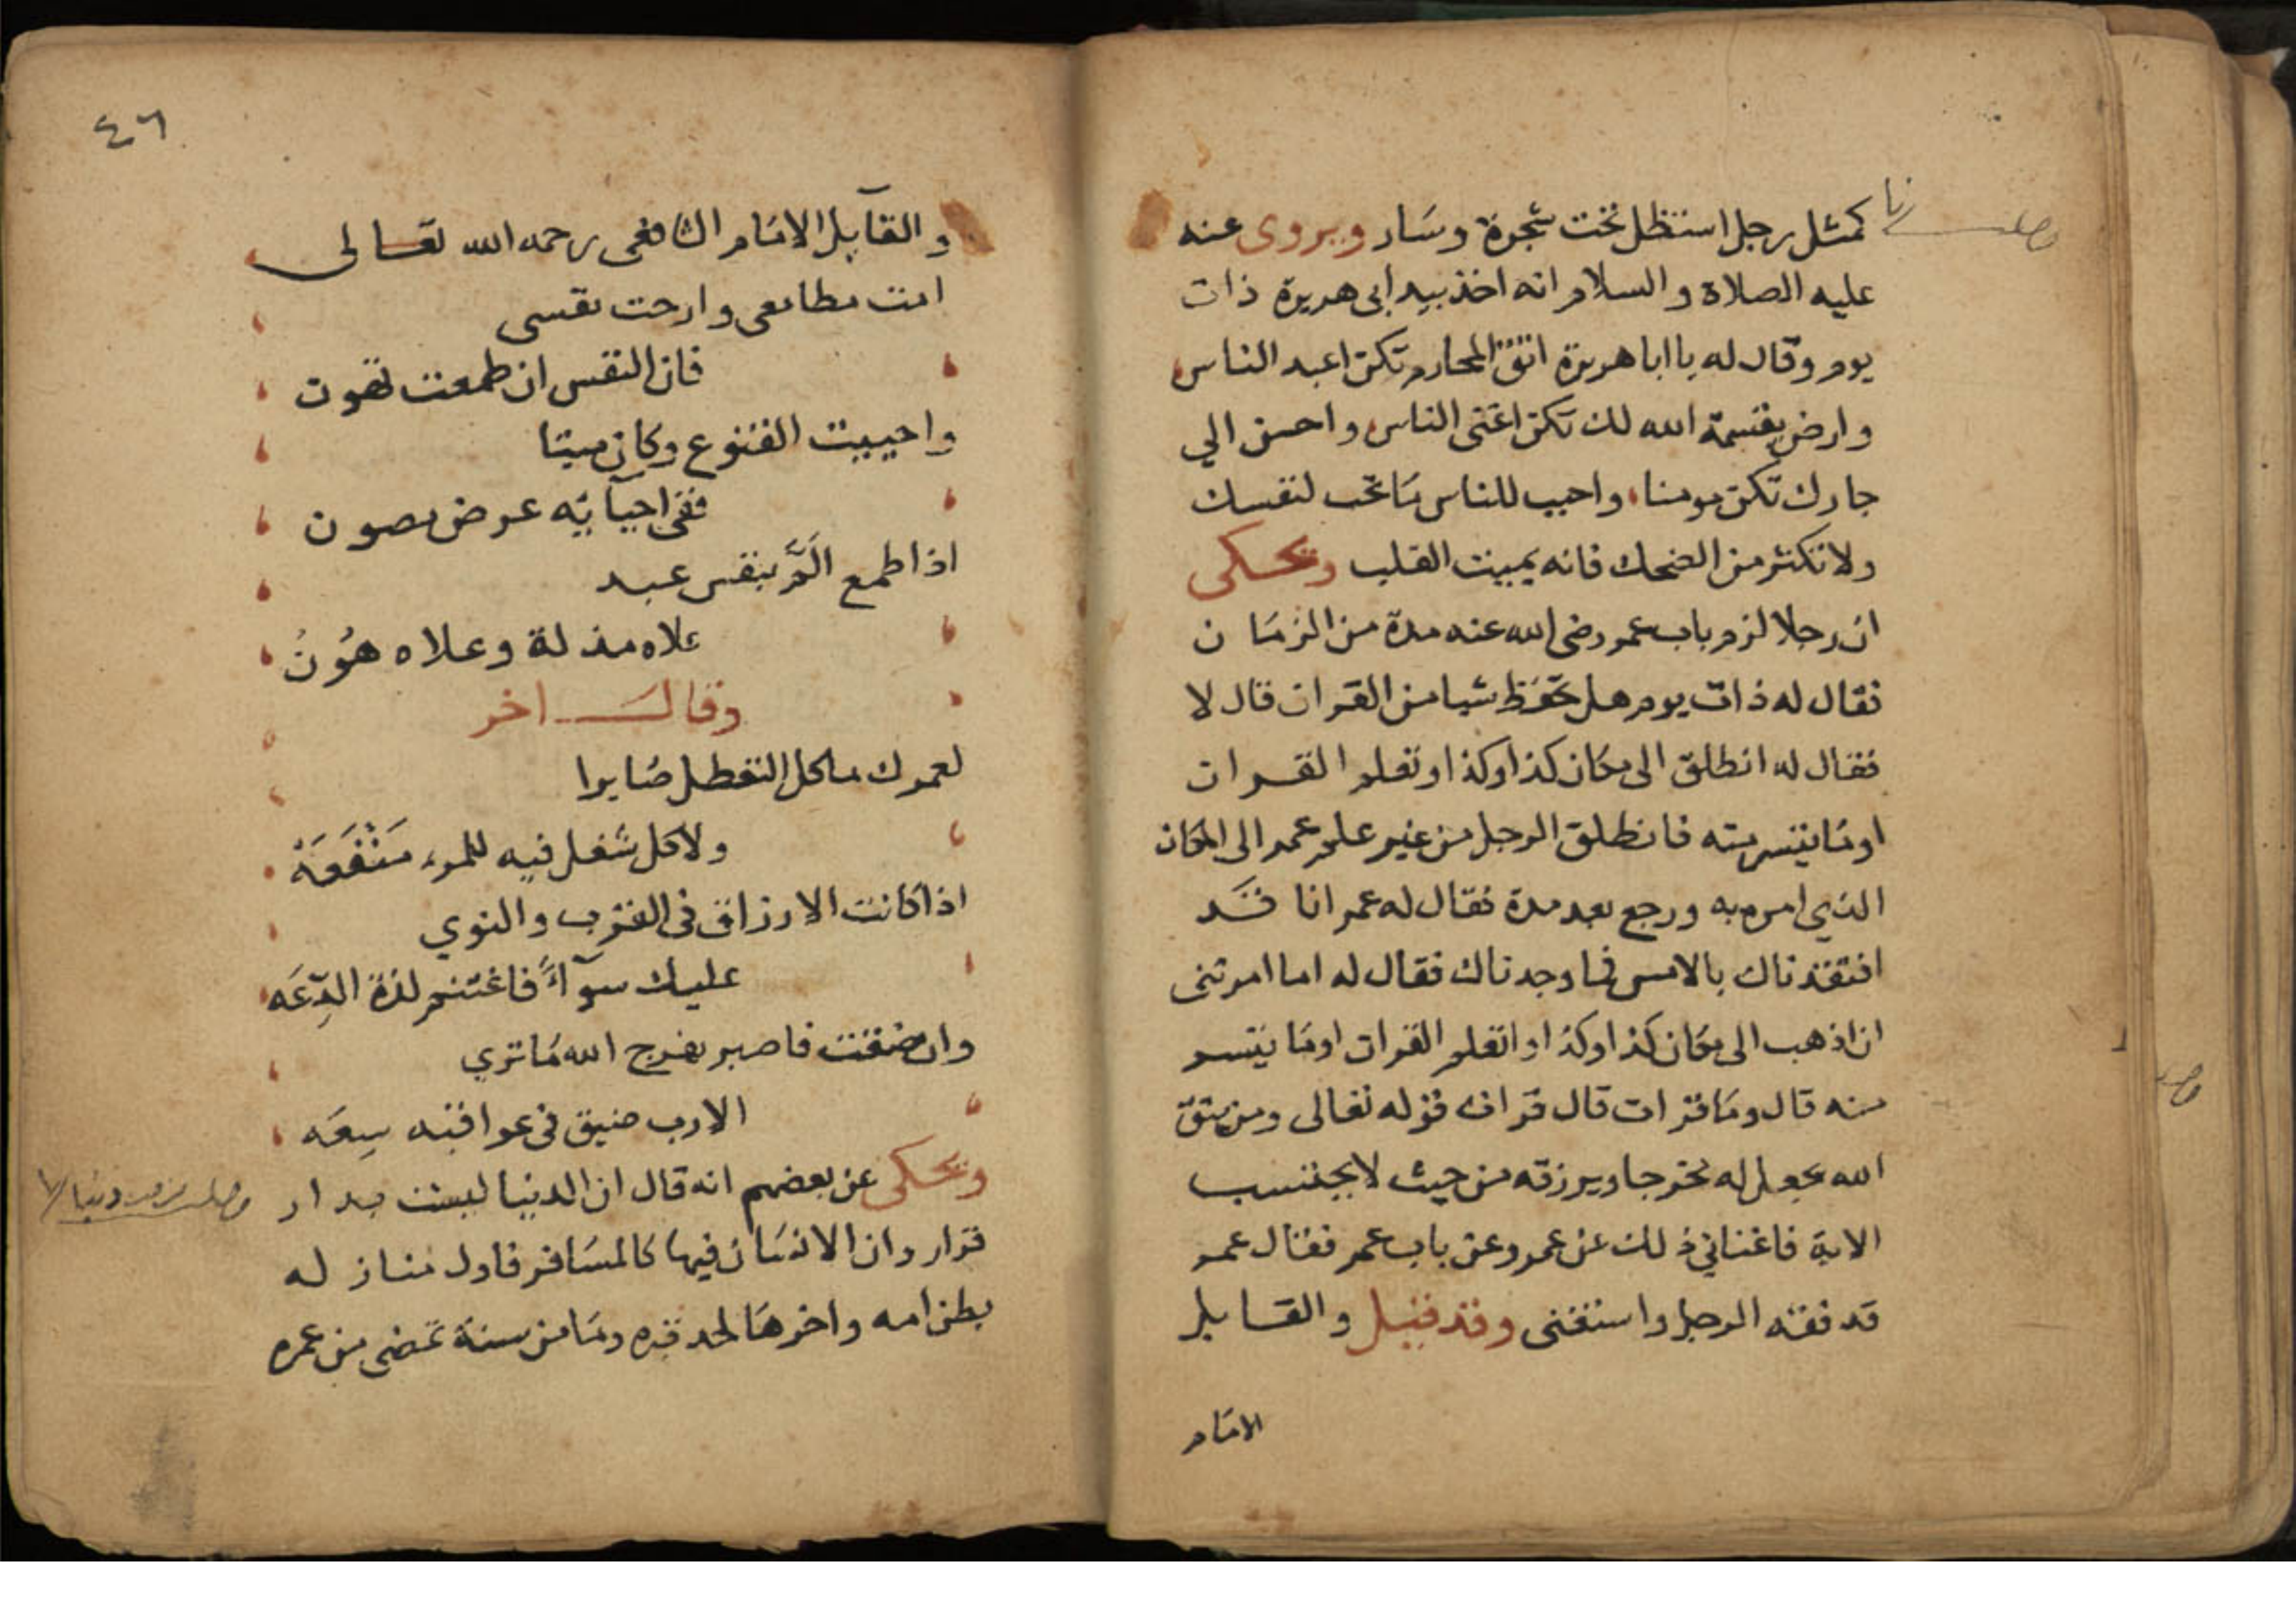 كمثل رجل استظل تحت شجرة وسار ويروى عنه
عليه الصلاة والسلام انه اخذ بيد ابى هريرة ذات
يوم وقال له يا ابا هريرة اتق المحارم تكن اعبد الناس
وارض بقسمة الله لك تكن اغنى الناس واحسن الي
جارك تكن مومنا واحبب للناس ما تحب لنفسك
ولا تكثر من الضحك فانه يميت القلب ويحكى
ان رجلا لزم باب عمر رضى الله عنه مدة من الزمان
فقال له ذات يوم هل تحفظ شيا من القران قال لا
فقال له انطلق الى مكان كذا وكذا وتعلم القران
او ما تيسر منه فانطلق الرجل من غير علم عمر الى المكان
الذي امره به ورجع بعد مدة فقال له عمر انا قد
افتقدناك بالامس فما وجدناك فقال له اما امرتنى
ان اذهب الى مكان كذا وكذا واتعلم القران او ما تيسر
منه قال وما قرات قال قرات قوله تعالى ومن يتق
الله يجعل له مخرجا ويرزقه من حيث لا يحتسب
الاية فاغناني ذلك عن عمر وعن باب عمر فقال عمر
قد فقه الرجل واستغنى وقد قيل والقايل
الامام
٤٦
والقآيل الامام الشافعى رحمه الله تعالى
امت مطامعى وارحت نفسى
فان النفس ان طمعت تهون
واحييت القنوع وكان ميتا
ففى احيآيه عرض مصون
اذا طمع المرء بنفس عبد
علاه مذلة وعلاه هُونُ
وقال اخر
لعمرك ما كل التعطل ضايرا
ولا كل شغل فيه للمرء مَنْفَعَهْ
اذا كانت الارزاق فى القرب والنوي
عليك سوآءً فاغتنم لذة الدِّعَه
وان ضقت فاصبر يفرج الله ما تري
الا رب ضيق فى عواقبه سِعَه
ويحكى عن بعضهم انه قال ان الدنيا ليست بدار
قرار وان الانسان فيها كالمسافر فاول منازله
بطن امه واخرها لحد قبره وما من سنة تمضى من عمره